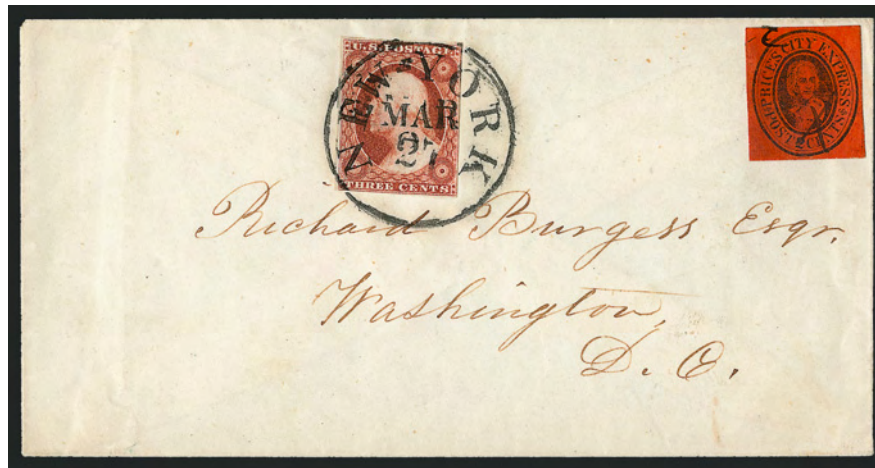 U.S. POSTAGE
THREE CENTS
NEW YORK
MAR
27
PRICE'S CITY EXPRESS
POST 2 CENTS
Richard Burgess Esqr.
Washington,
D. C.